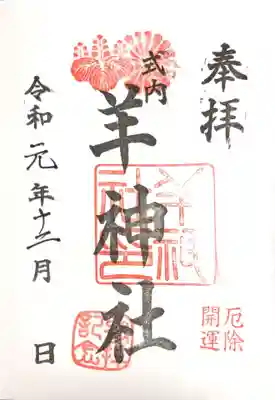 奉拝
式内
羊神社
厄除
開運
令和元年十二月 日